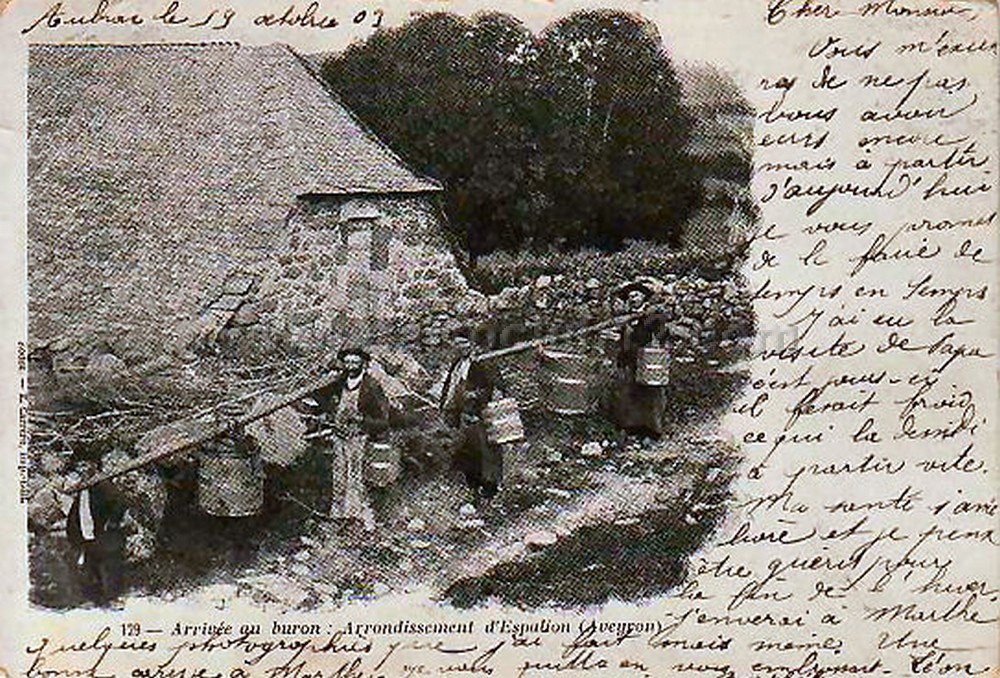 Aubrac le 19 octobre 03
Cher Monsieur,
Vous m'excu
rez de ne pas
vous avoir
écrit encore
mais à partir
d'aujourd'hui
je vous promet
de le faire de
temps en temps
J'ai eu la
visite de Papa
ces jours-ci
il ferait froid
ce qui l'a
à partir vite.
Ma santé s'amé
liore et je pense
être guéri pour
la fin de l'hiver,
j'enverrai à Marthe
179 — Arrivée au buron : Arrondissement d'Espalion (Aveyron)
quelques photographies que j'ai fait moi même. Une
bonne à Marthe je vous quitte en vous embrassant. Léon